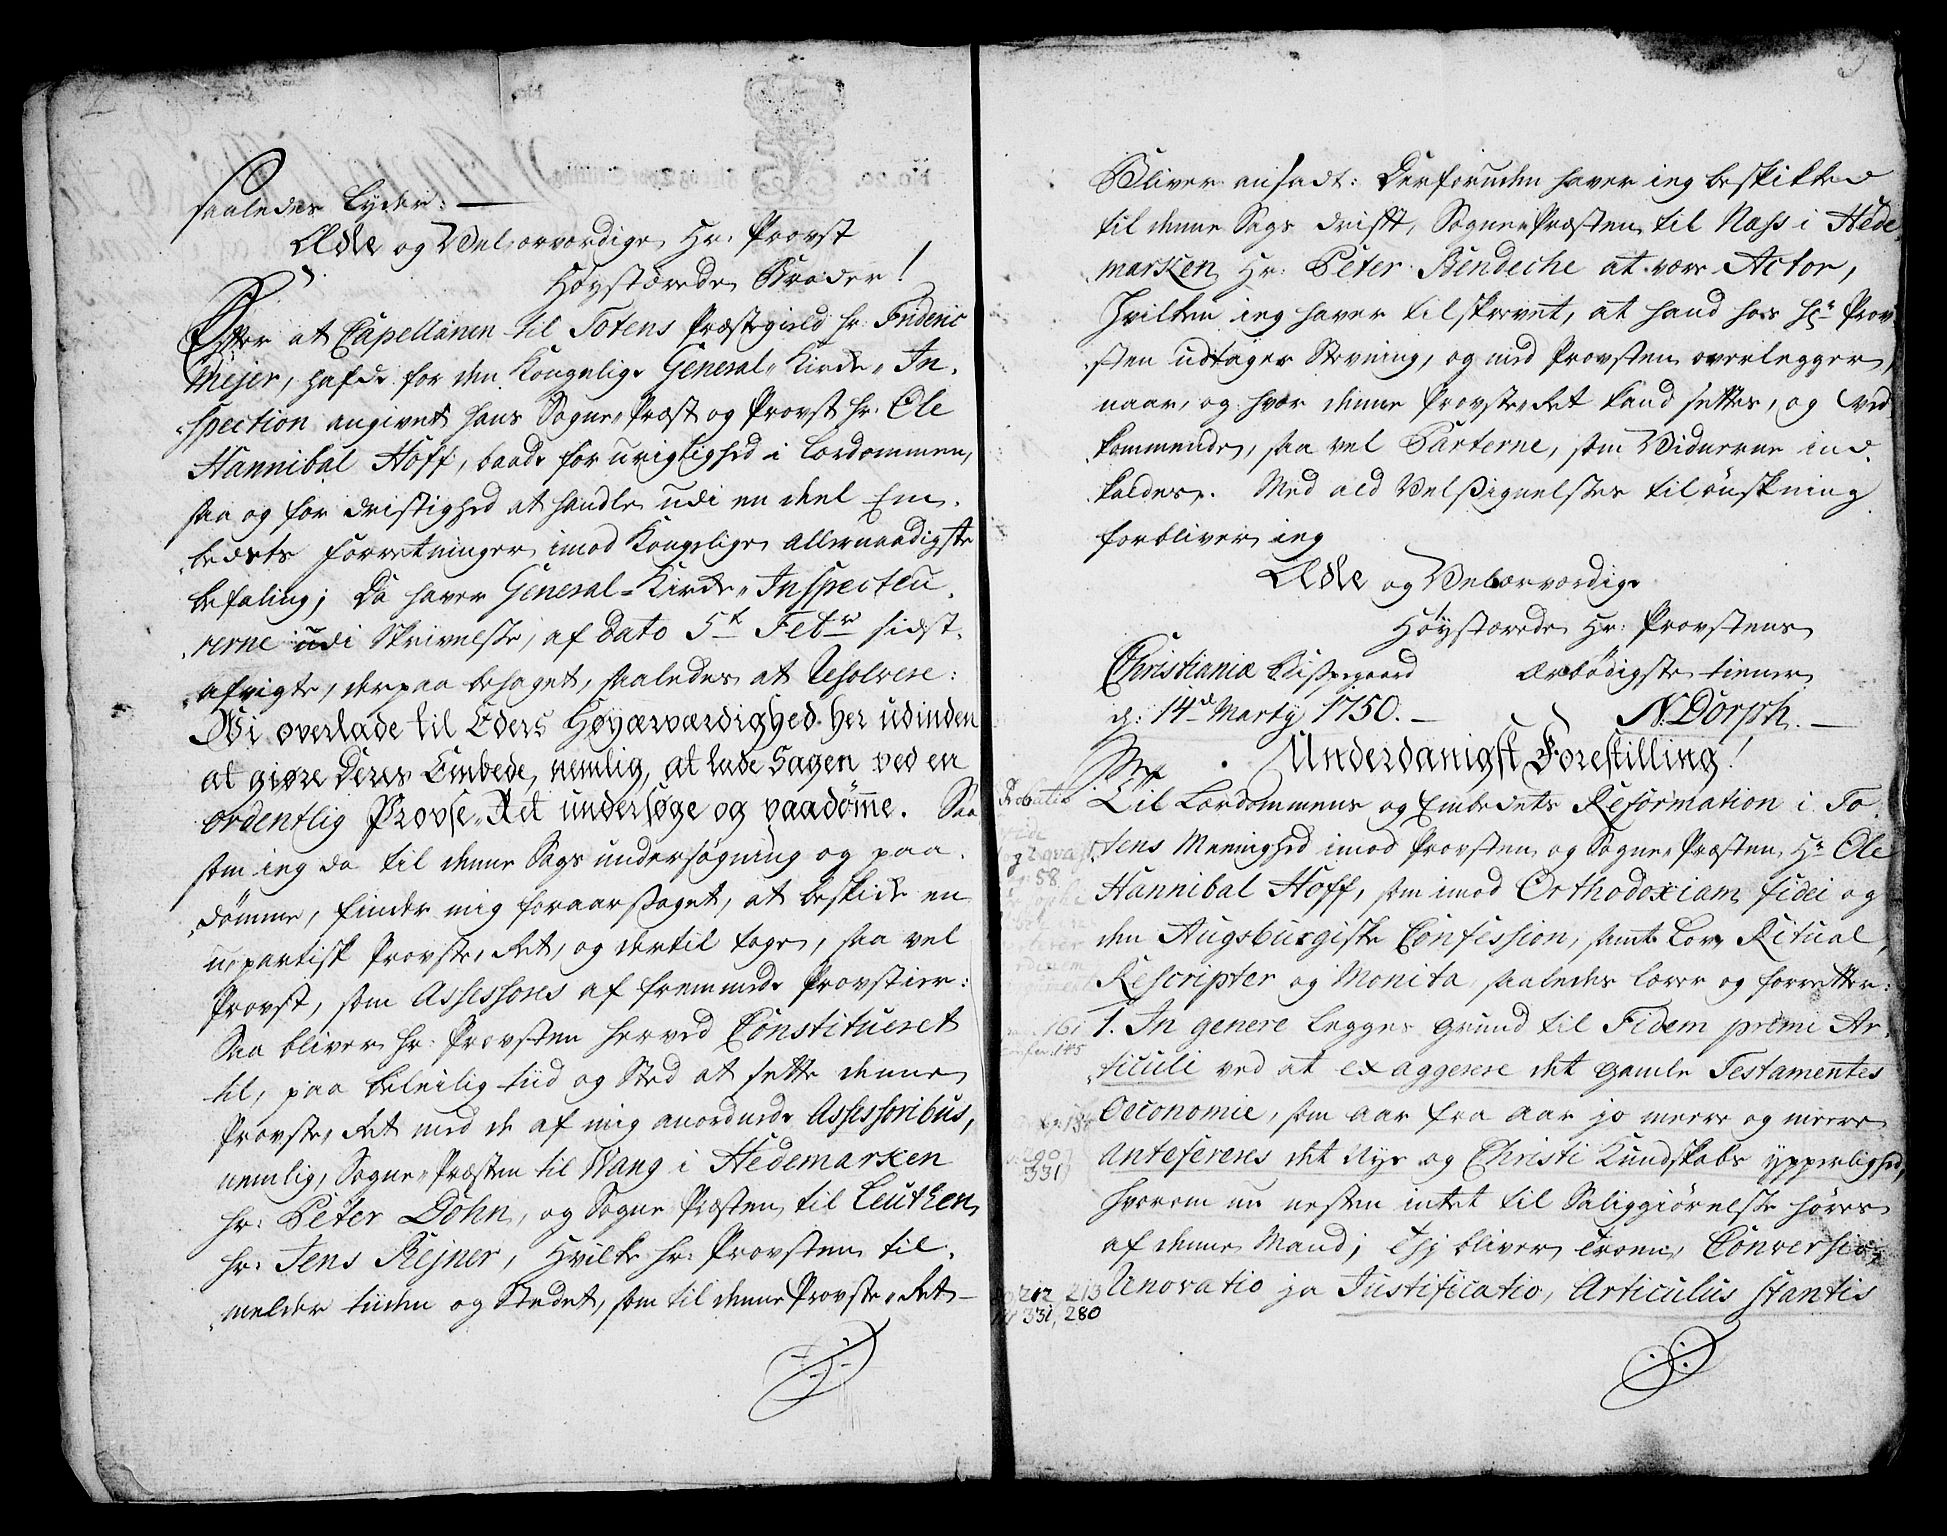 saaledes lyder: —
Ædle og Velærværdige Hr. Provst
Høystærede Broder!
Efter at Capellanen til Totens Præstegield hr. Frideric
Mejer, hafde for den Kongelige General-Kirke-In-
spection angivet hans Sogne-Præst og Provst hr. Ole
Hannibal Hoff, baade for urigtighed i Lærdommen,
saa og for dristighed at handle udi en deel Em-
bedets forretninger imod Kongelige allernaadigste
befaling; Da haver General-Kirke-Inspecteu-
rerne udi Skrivelse, af Dato 5t Febr sidst-
afvigte, derpaa behaget, saaledes at Resolvere:
Wi overlade til Eders Høyærværdighed her udinden
at giøre Deres Embede, nemlig, at lade Sagen ved en
ordentlig Provste-Ret undersøge og paadømme. Saa
som ieg da til denne Sags undersøgning og paa-
dømme, finder mig foraarsaget, at beskicke en
upartisk Provste-Ret, og dertil tage, saa vel
Provst, som Assessores af fremmede Provstier:
Saa bliver hr. Provsten herved Constitueret
til, paa beleilig tiid og Sted at sette denne
Provste-Ret med de af mig anordnede Assessoribus,
nemlig, Sogne-Præsten til Wang i Hedemarken
hr: Peter Dohn, og Sogne Præsten til Leuthen,
hr: Jens Rejner, Hvilke hr: Provsten til-
melder tiiden og Stedet, som til denne Provste-Ret
Bliver ansadt: Derforuden haver ieg beskikked
til denne Sags drift, Sogne-Præsten til Næss i Hede-
marken Hr: Peter Bendeche at være Actor,
Hvilken ieg haver tilskrevet, at hand hos Hr Prov-
sten udtager Stevning, og med Provsten overlegger,
naar, og hvor denne Provste-Ret kand settes, og ved-
kommende, saa vel Parterne, som Vidnerne ind-
kaldes. Med ald Velsignelses tilønskning
forbliver ieg
Ædle og Velærværdige
Høystærede Hr: Provstens
Christianiæ Bispegaard ærbødigste tiener
d: 14d Martij 1750. — N. Dorph. —
Underdanigst Forestilling!
Til Lærdommens og Embedets Reformation i To-
tens Menighed imod Provsten og Sogne-Præsten Hr Ole
Hannibal Hoff, som imod Orthodoxiam fidei og
den Augsburgiske Confession, samt Lov, Ritual,
Rescripter og Monita saaledes lærer og forretter:
161 1. In genere legges grund til Fidem primi Ar-
145
ticuli ved at exaggerere det gamle Testamentes
Oeconomie, som aar fra aar jo meere og meere
Antefereres det Nye og Christi Kundskabs ypperlighed,
331
hvorom nu nesten intet til Saliggiørelse høres
af denne Mand; Thj bliver Troen, Conversio,
212 213 Renovatio ja Justificatio, Articulus stantis
331, 280